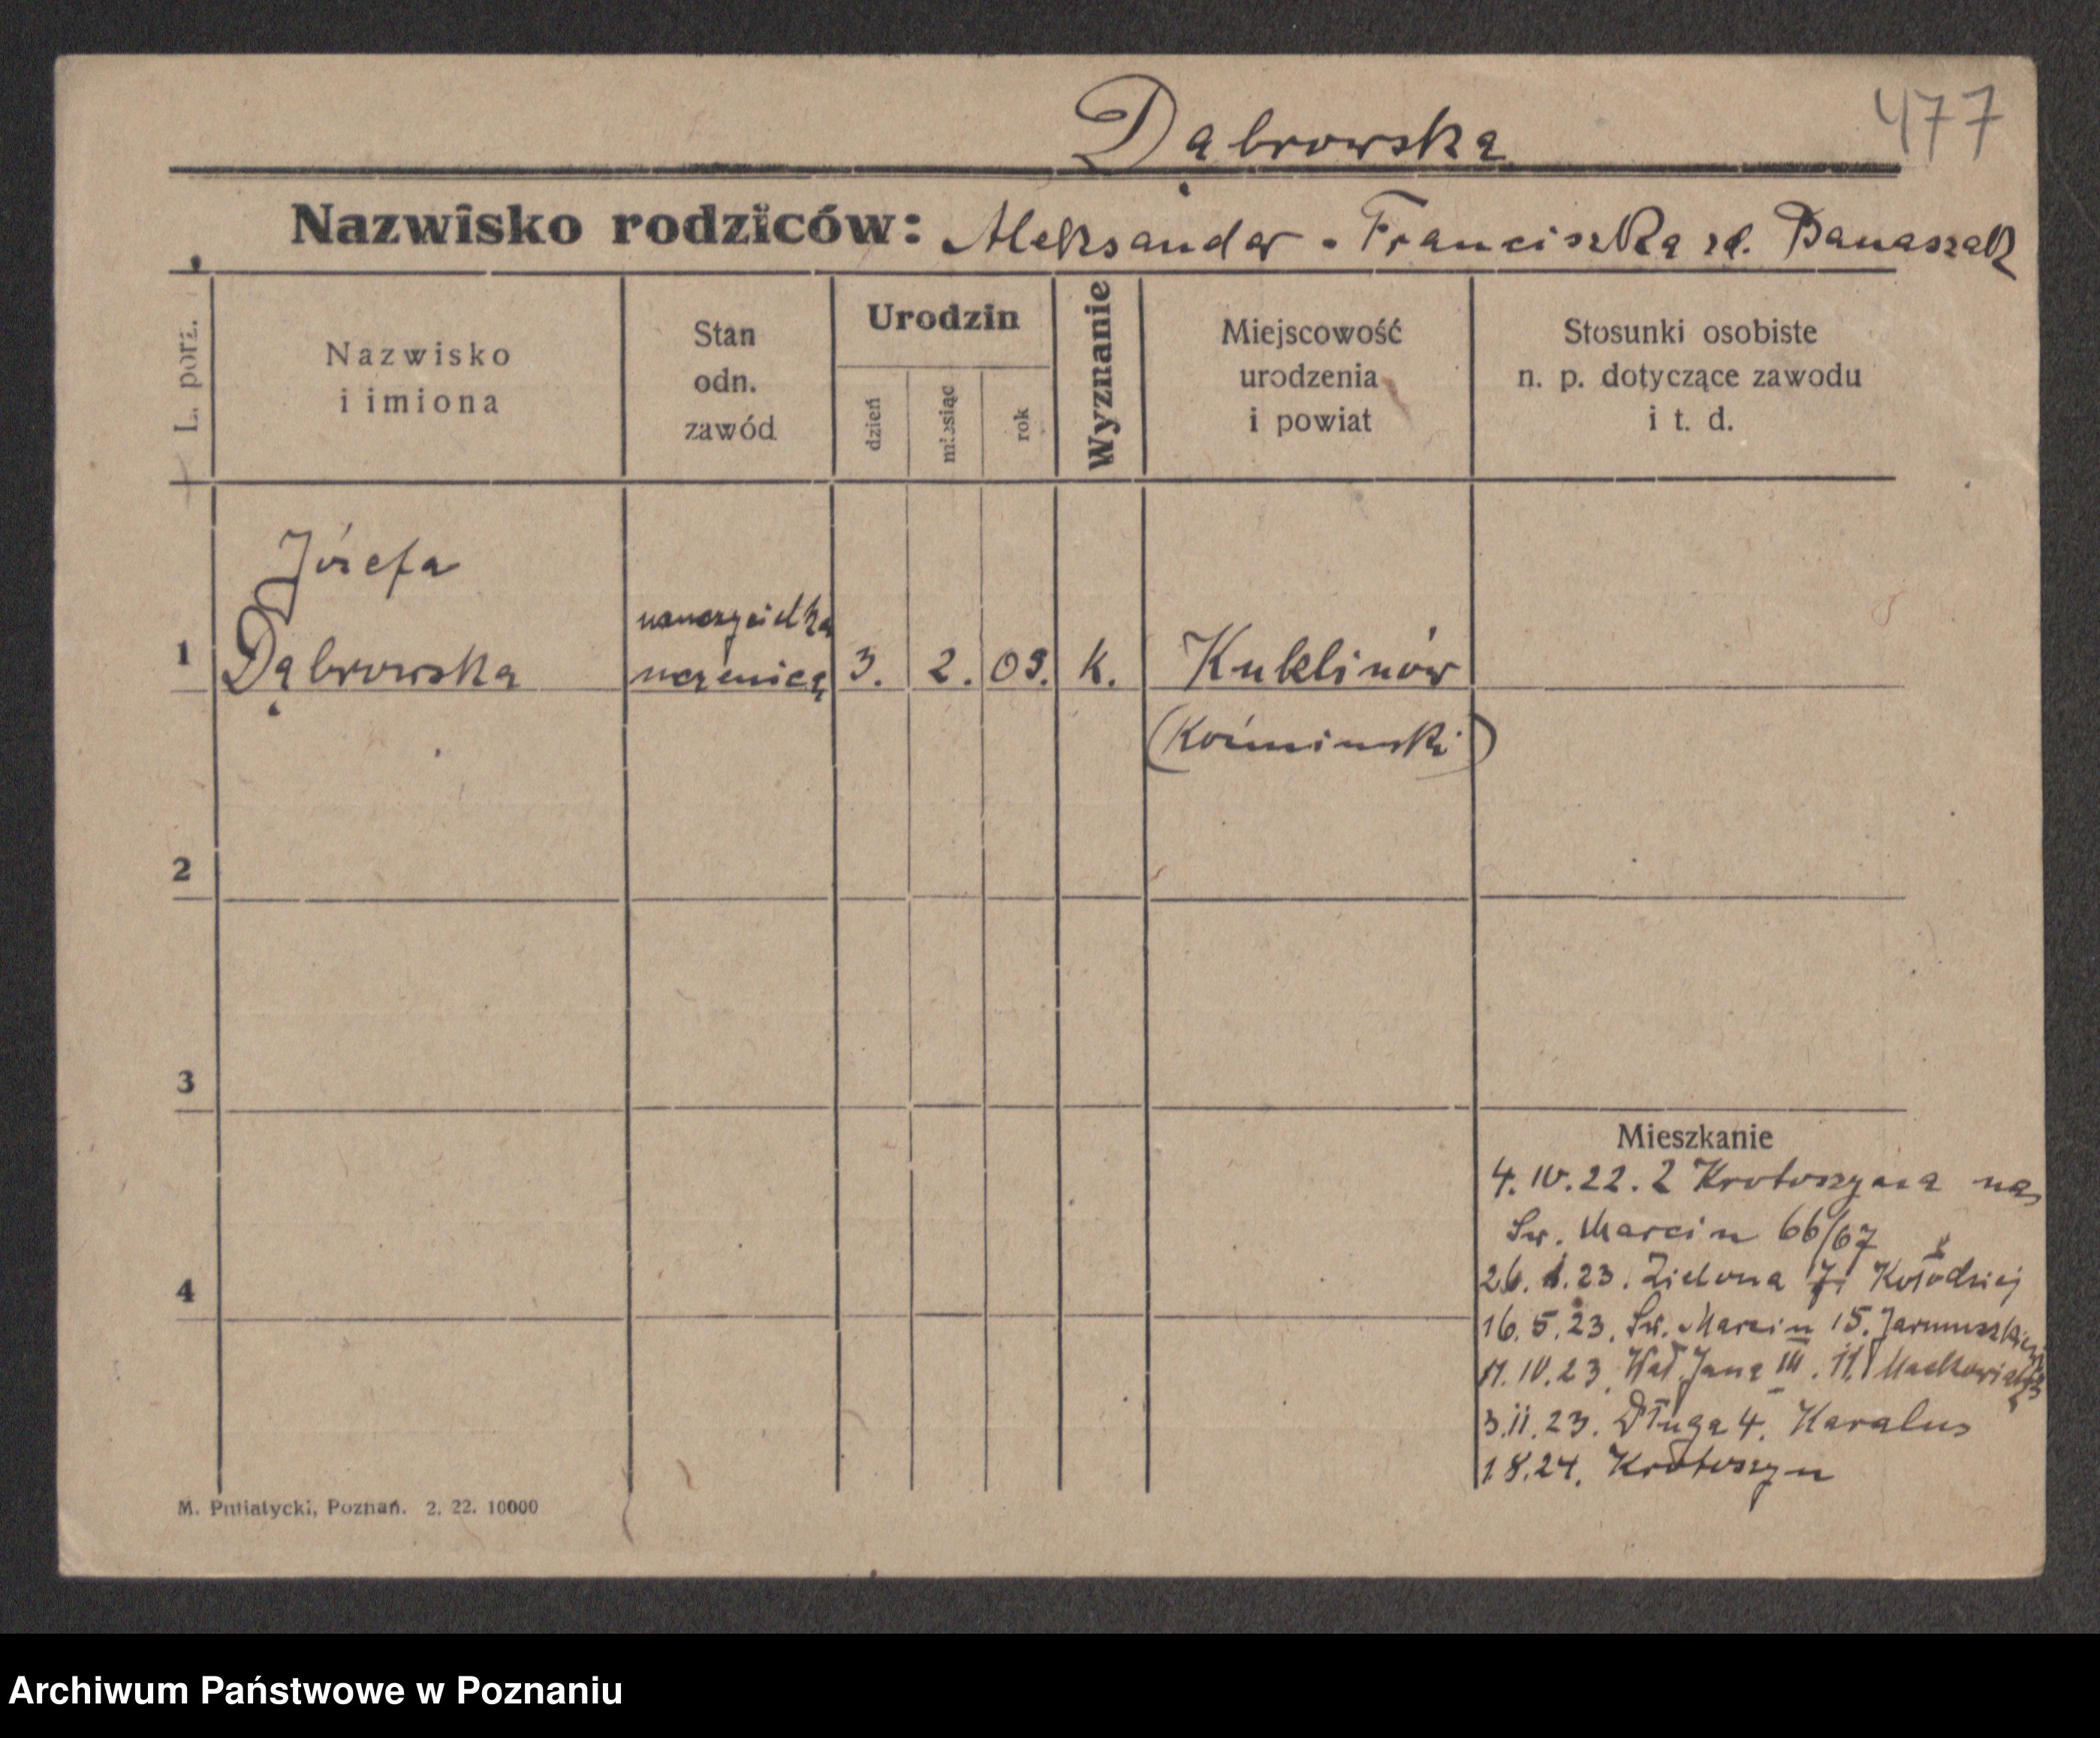 Dąbrowska
477
Nazwisko rodziców: Aleksander - Franciszka zd. Banaszak
L. porz.
Nazwisko
i imiona
Stan
odn.
zawód
Urodzin
dzień
miesiąc
rok
Wyznanie
Miejscowość
urodzenia
i powiat
Stosunki osobiste
n. p. dotyczące zawodu
i t. d.
Józefa
nauczycielka
1 Dąbrowska uczenica 3. 2. 09. k. Kuklinów
(Koźmiński)
2
3
Mieszkanie
4. IV. 22. Z Krotoszyna na
Św. Marcin 66/67
4
26. 1. 23. Zielona 7 Kołodziej
16. 5. 23. Św. Marcin 15. Jarmuszkiewicz
IV. 23. Wał Jana III. 11. Maćkowiak
3. 11. 23. Długa 4. Karalus
1 8. 24. Krotoszyn
M. Putiatycki, Poznań. 2. 22. 10000
Archiwum Państwowe w Poznaniu